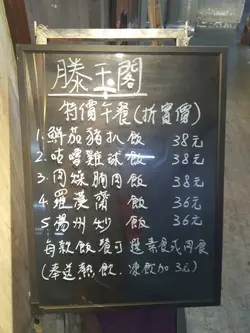 滕王閣
特價午餐(折實價)
1.鮮茄豬扒飯 38元
2.咕嚕雞球飯 38元
3.肉碎腩肉飯 38元
4.羅漢齋飯 36元
5.揚州炒飯 36元
每款飯餐可選素食或肉食
(奉送熱飲.凍飲加3元)